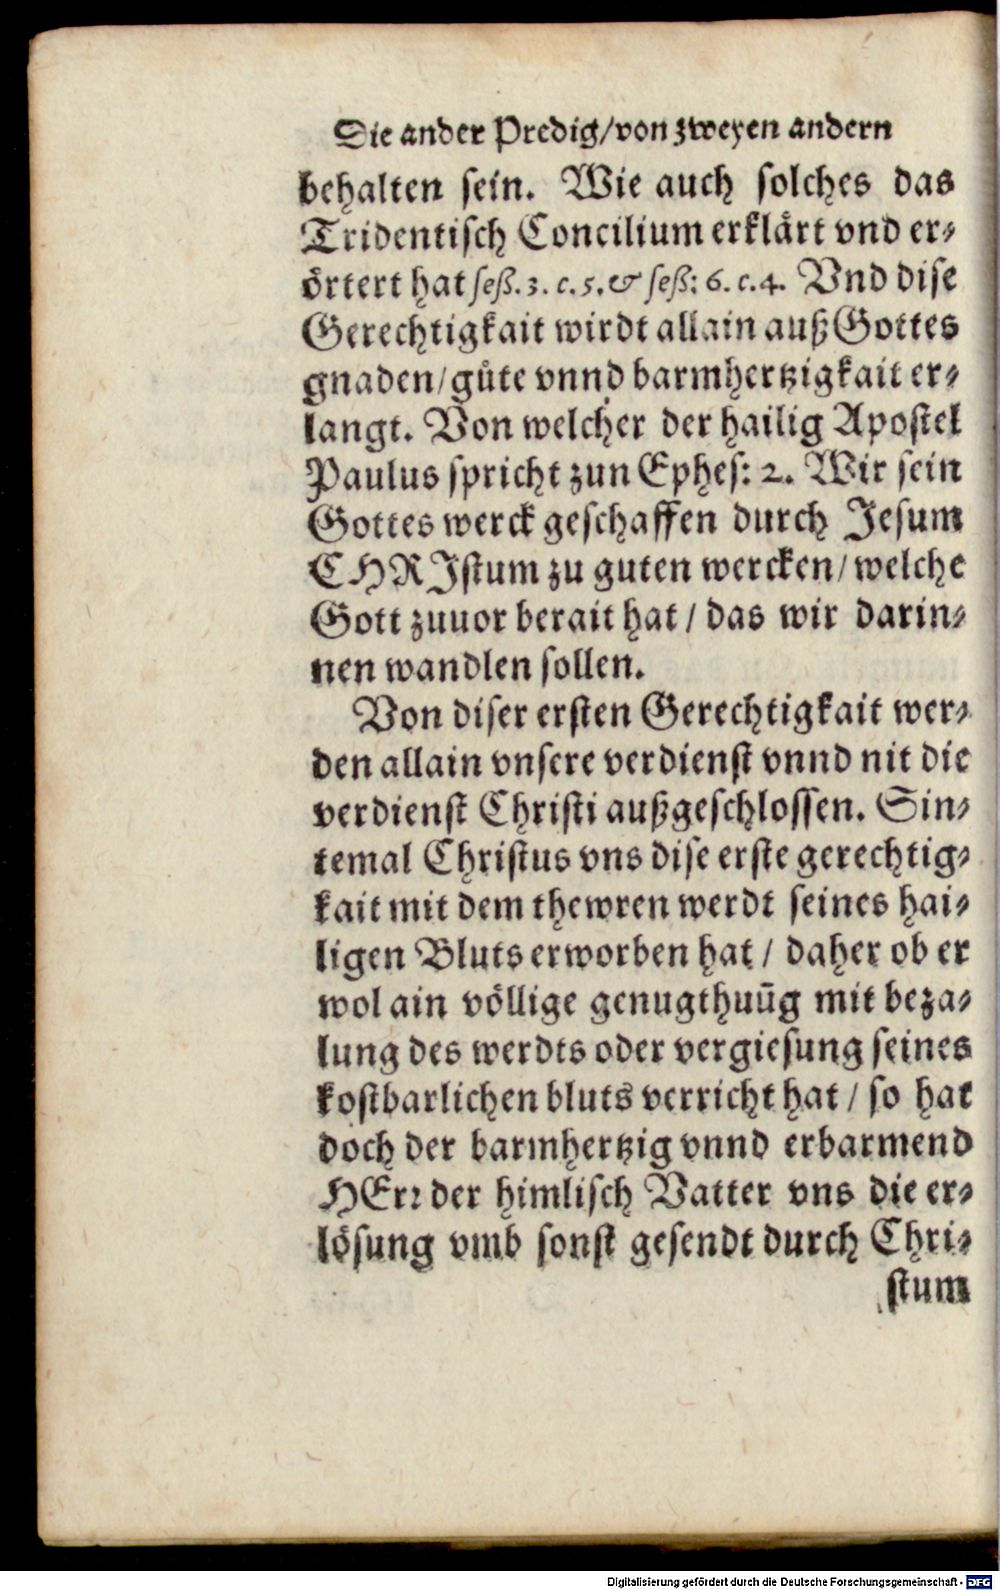 Die ander Predig/von zweyen andern
behalten sein. Wie auch solches das
Tridentisch Concilium erklärt vnd er⸗
örtert hat seß. 3. c. 5. & seß: 6. c. 4. Vnd dise
Gerechtigkait wirdt allain auß Gottes
gnaden/ gůte vnnd barmhertzigkait er⸗
langt. Von welcher der hailig Apostel
Paulus spricht zun Ephes: 2. Wir sein
Gottes werck geschaffen durch Jesum
CHRIstum zu guten wercken/ welche
Gott zuuor berait hat / das wir darin⸗
nen wandlen sollen.
Von diser ersten Gerechtigkait wer⸗
den allain vnsere verdienst vnnd nit die
verdienst Christi außgeschlossen. Sin⸗
temal Christus vns dise erste gerechtig⸗
kait mit dem thewren werdt seines hai⸗
ligen Bluts erworben hat / daher ob er
wol ain völlige genugthuūg mit beza⸗
lung des werdts oder vergiesung seines
kostbarlichen bluts verricht hat / so hat
doch der barmhertzig vnnd erbarmend
HErr der himlisch Vatter vns die er⸗
lösung vmb sonst gesendt durch Chri⸗
stum
Digitalisierung gefördert durch die Deutsche Forschungsgemeinschaft - DFG